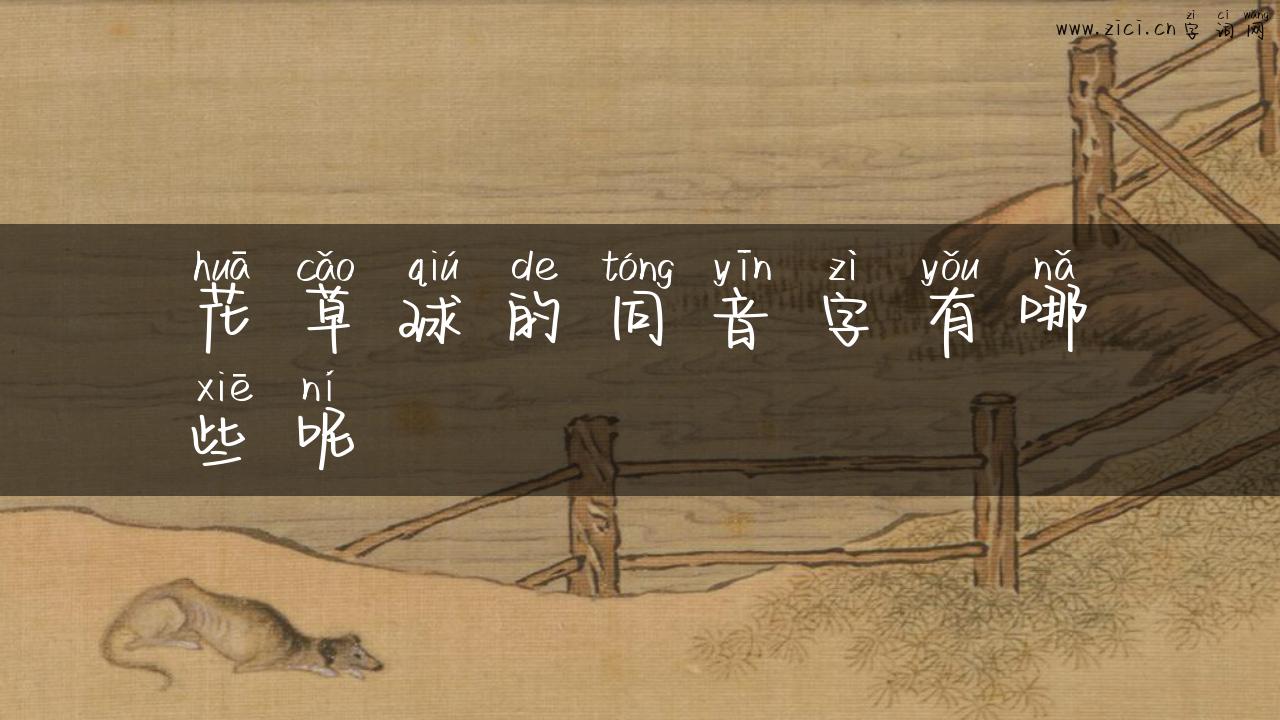 zì cí wǎng
www.zici.cn 字词网
huā cǎo qiú de tóng yīn zì yǒu nǎ
花草球的同音字有哪
xiē ní
些呢